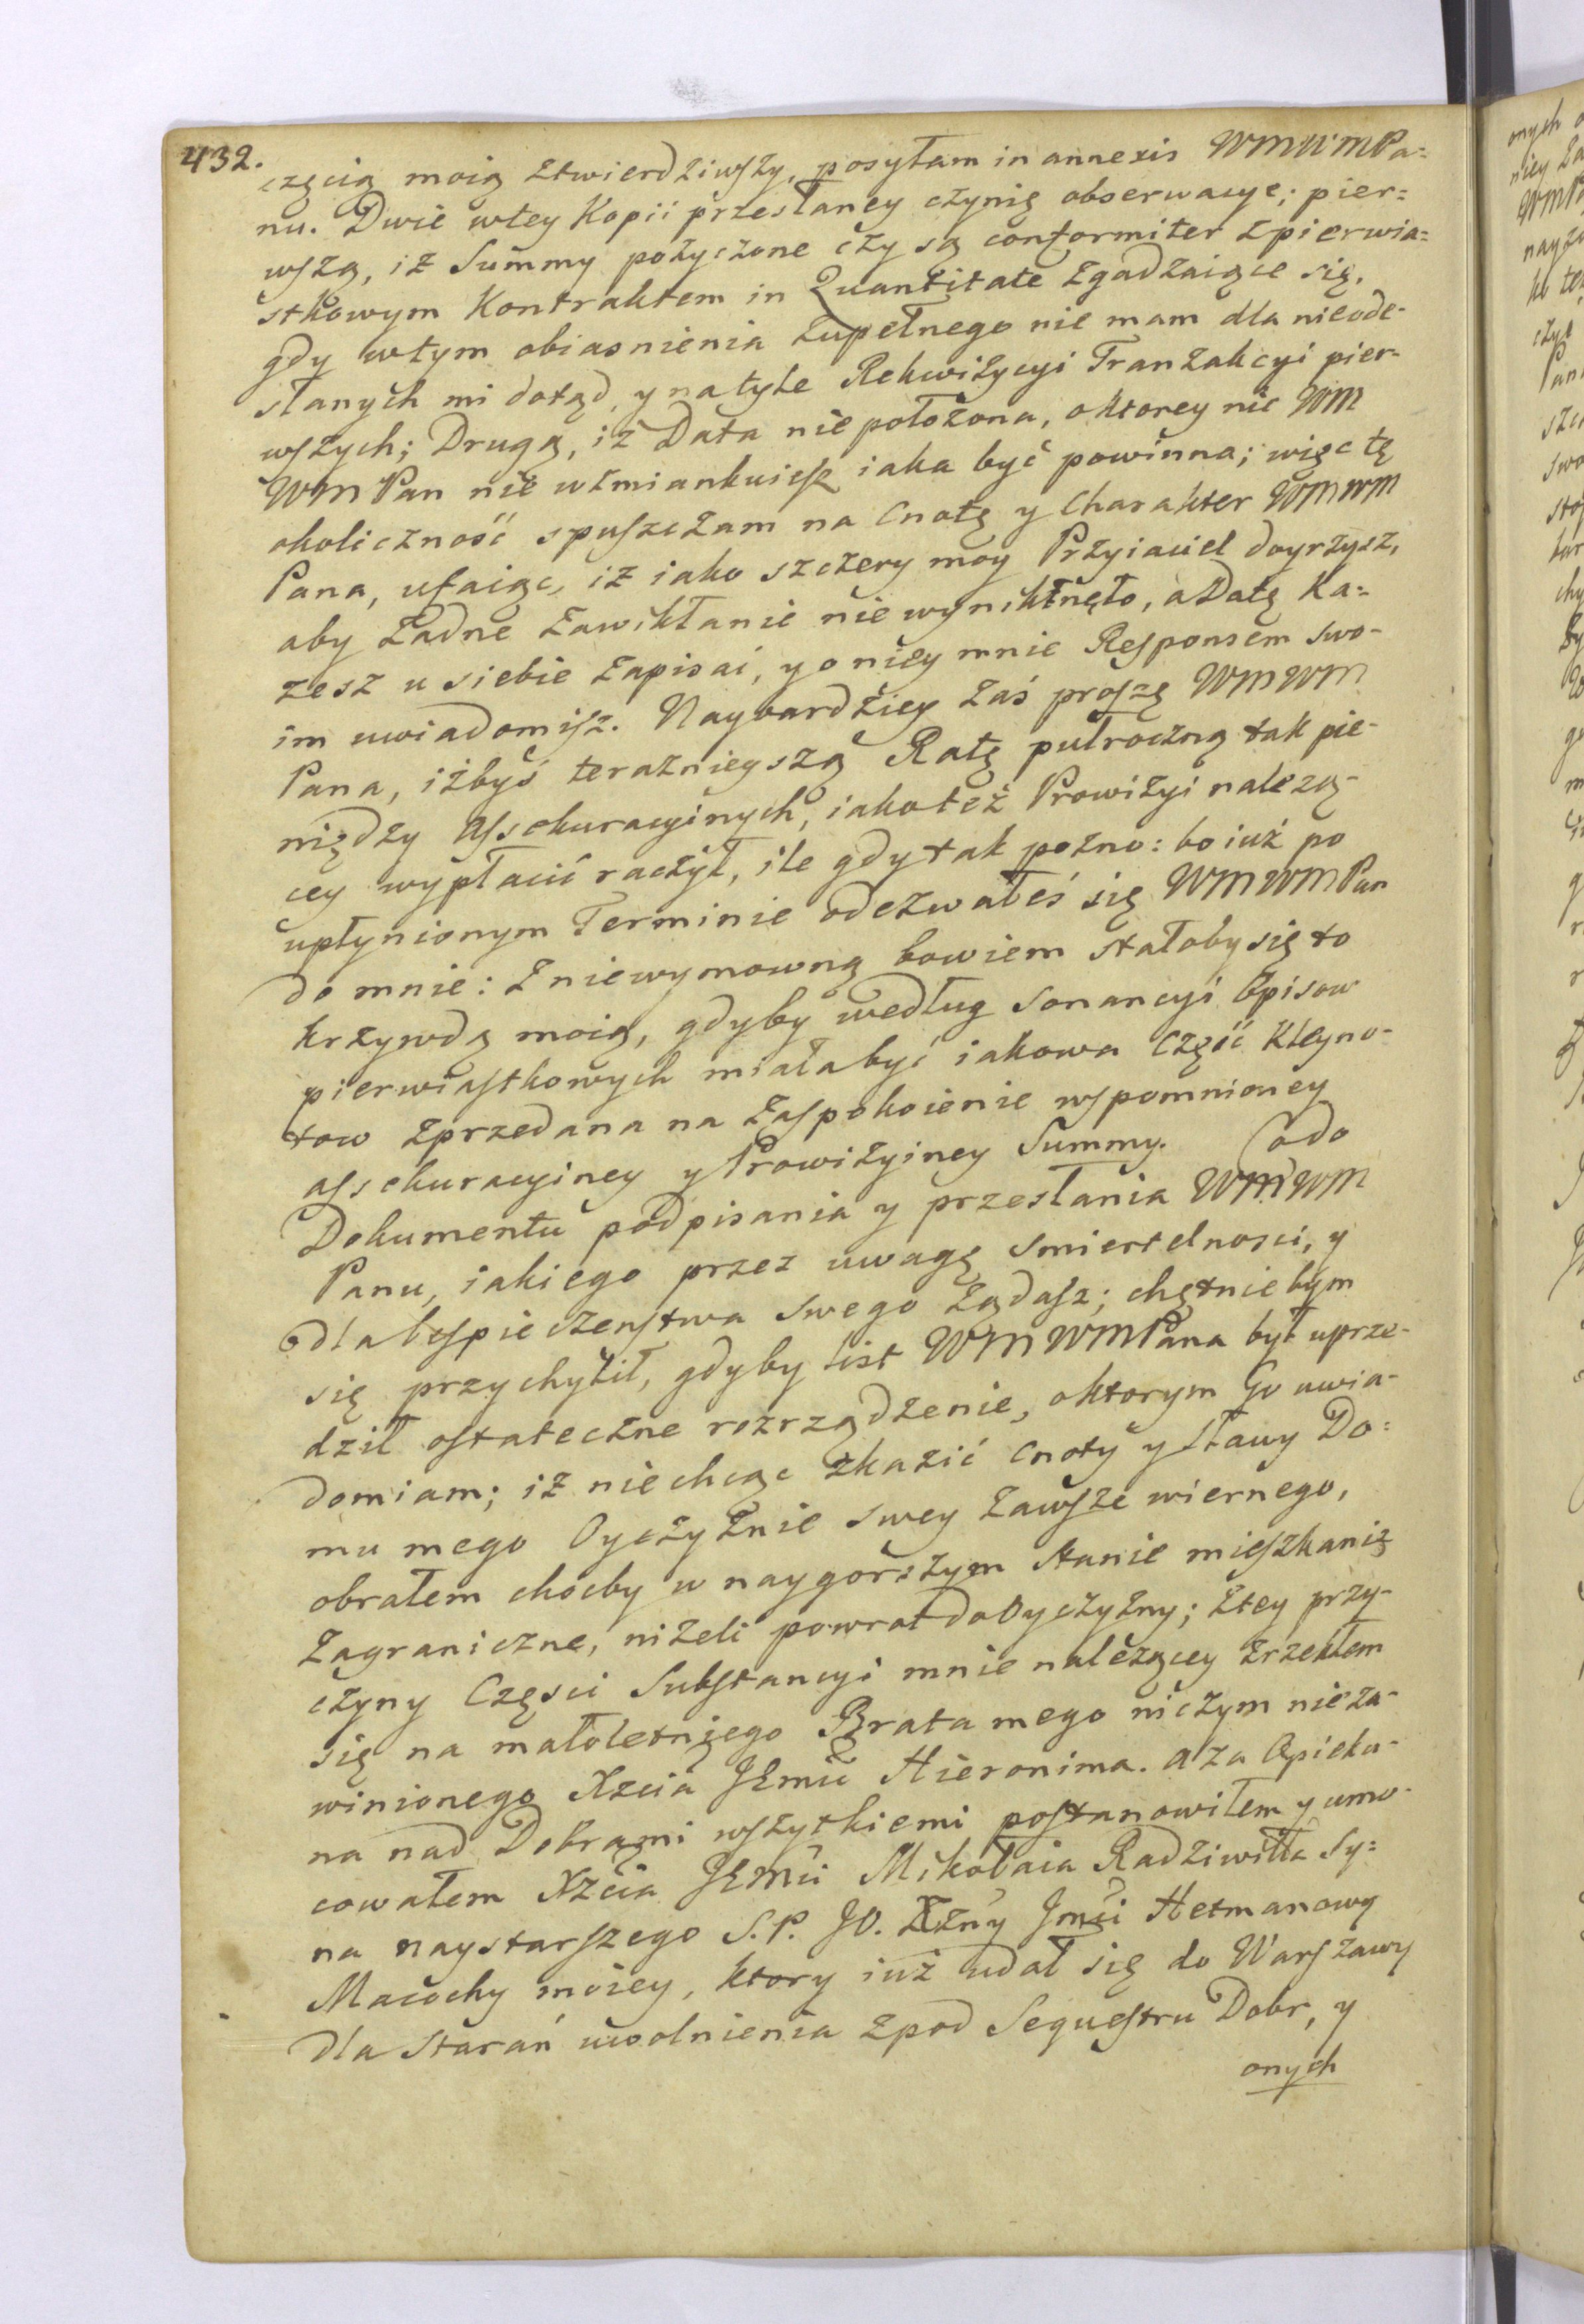 432.
częcią moią ztwierdziwszy, posyłam in annexis WMWMPa=
nu. Dwie wtey Kopii przesłaney czynię obserwacye; pier=
wszą, iż Summy pożyczone czy są conformiter zpierwia=
stkowym Kontraktem in Quantitate zgadzaiące się,
gdy wtym obiasnienia zupełnego nie mam dla nieode-
słanych mi dotąd, y natyle Rekwizycyi Tranzakcyi pier-
wszych; Drugą, iż Data nie położona, oktorey nic WM
WMPan nie wzmiankuiesz iaka być powinna; więc tę
okoliczność spuszczam na Cnotę y Charakter WMWM
Pana, ufaiąc, iż iako szczery moy Przyiaciel doyrzysz,
aby żadne zawikłanie niewyniknęło, a Datę Ka=
żesz u siebie zapisać, y o niey mnie Responsem swo-
im uwiadomisz. Naybardziey zaś proszę WMWM
Pana, iżbyś terazniegszą Ratę pułroczną tak pie-
niędzy Assekuracyinych, iakoteż Prowizyi należą-
cey wypłacić raczył, ile gdy tak pozno: bo iuż po
upłynionym Terminie odezwałeś się WMWMPan
do mnie: zniewymowną bowiem stałoby się to
krzywdą moią, gdyby według Sonancyi Opisow
pierwiastkowych miała być iakowa Część Kleyno-
tow zprzedana na zaspokoienie wspomnioney
assekuracyiney y Prowizyiney Summy. Codo
Dokumentu podpisania y przesłania WMWM
Panu, iakiego przez uwagę smiertelnosci, y
dla bespieczenstwa swego żądasz; chętnie bym
się przychylił, gdyby list WMWMPana był uprze-
dził ostateczne rozrządzenie, oktorym Go uwia-
domiam; iż niechcąc zkazić Cnoty y Sławy Do=
mu mego Oyczyznie swey zawsze wiernego,
obrałem choćby w naygorszym stanie mieszkanię
Zagraniczne, niżeli powrot do Oyczyzny; ztey przy-
czyny Częsci Substancyi mnie należącey zrzekłem
się na małoletniego Brata mego niczym nieza-
winionego Xzcia JEmci Hieronima. a za Opieku-
na nad Dobrami wszytkiemi postanowiłem y umo-
cowałem Xzcia JEMci Mikołaia Radziwiłła Sy=
na naystarszego S.P. JO. Xżny Jmci Hetmanowy
Macochy moiey, ktory iuż udał się do Warszawy
dla starań uwolnienia zpod Sequestru Dobr, y
onych